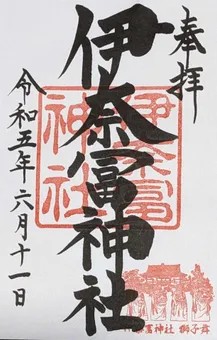 奉拝
伊奈冨神社
伊奈冨
神社
令和五年六月十一日
冨神社 獅子舞